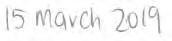 15 March 2019